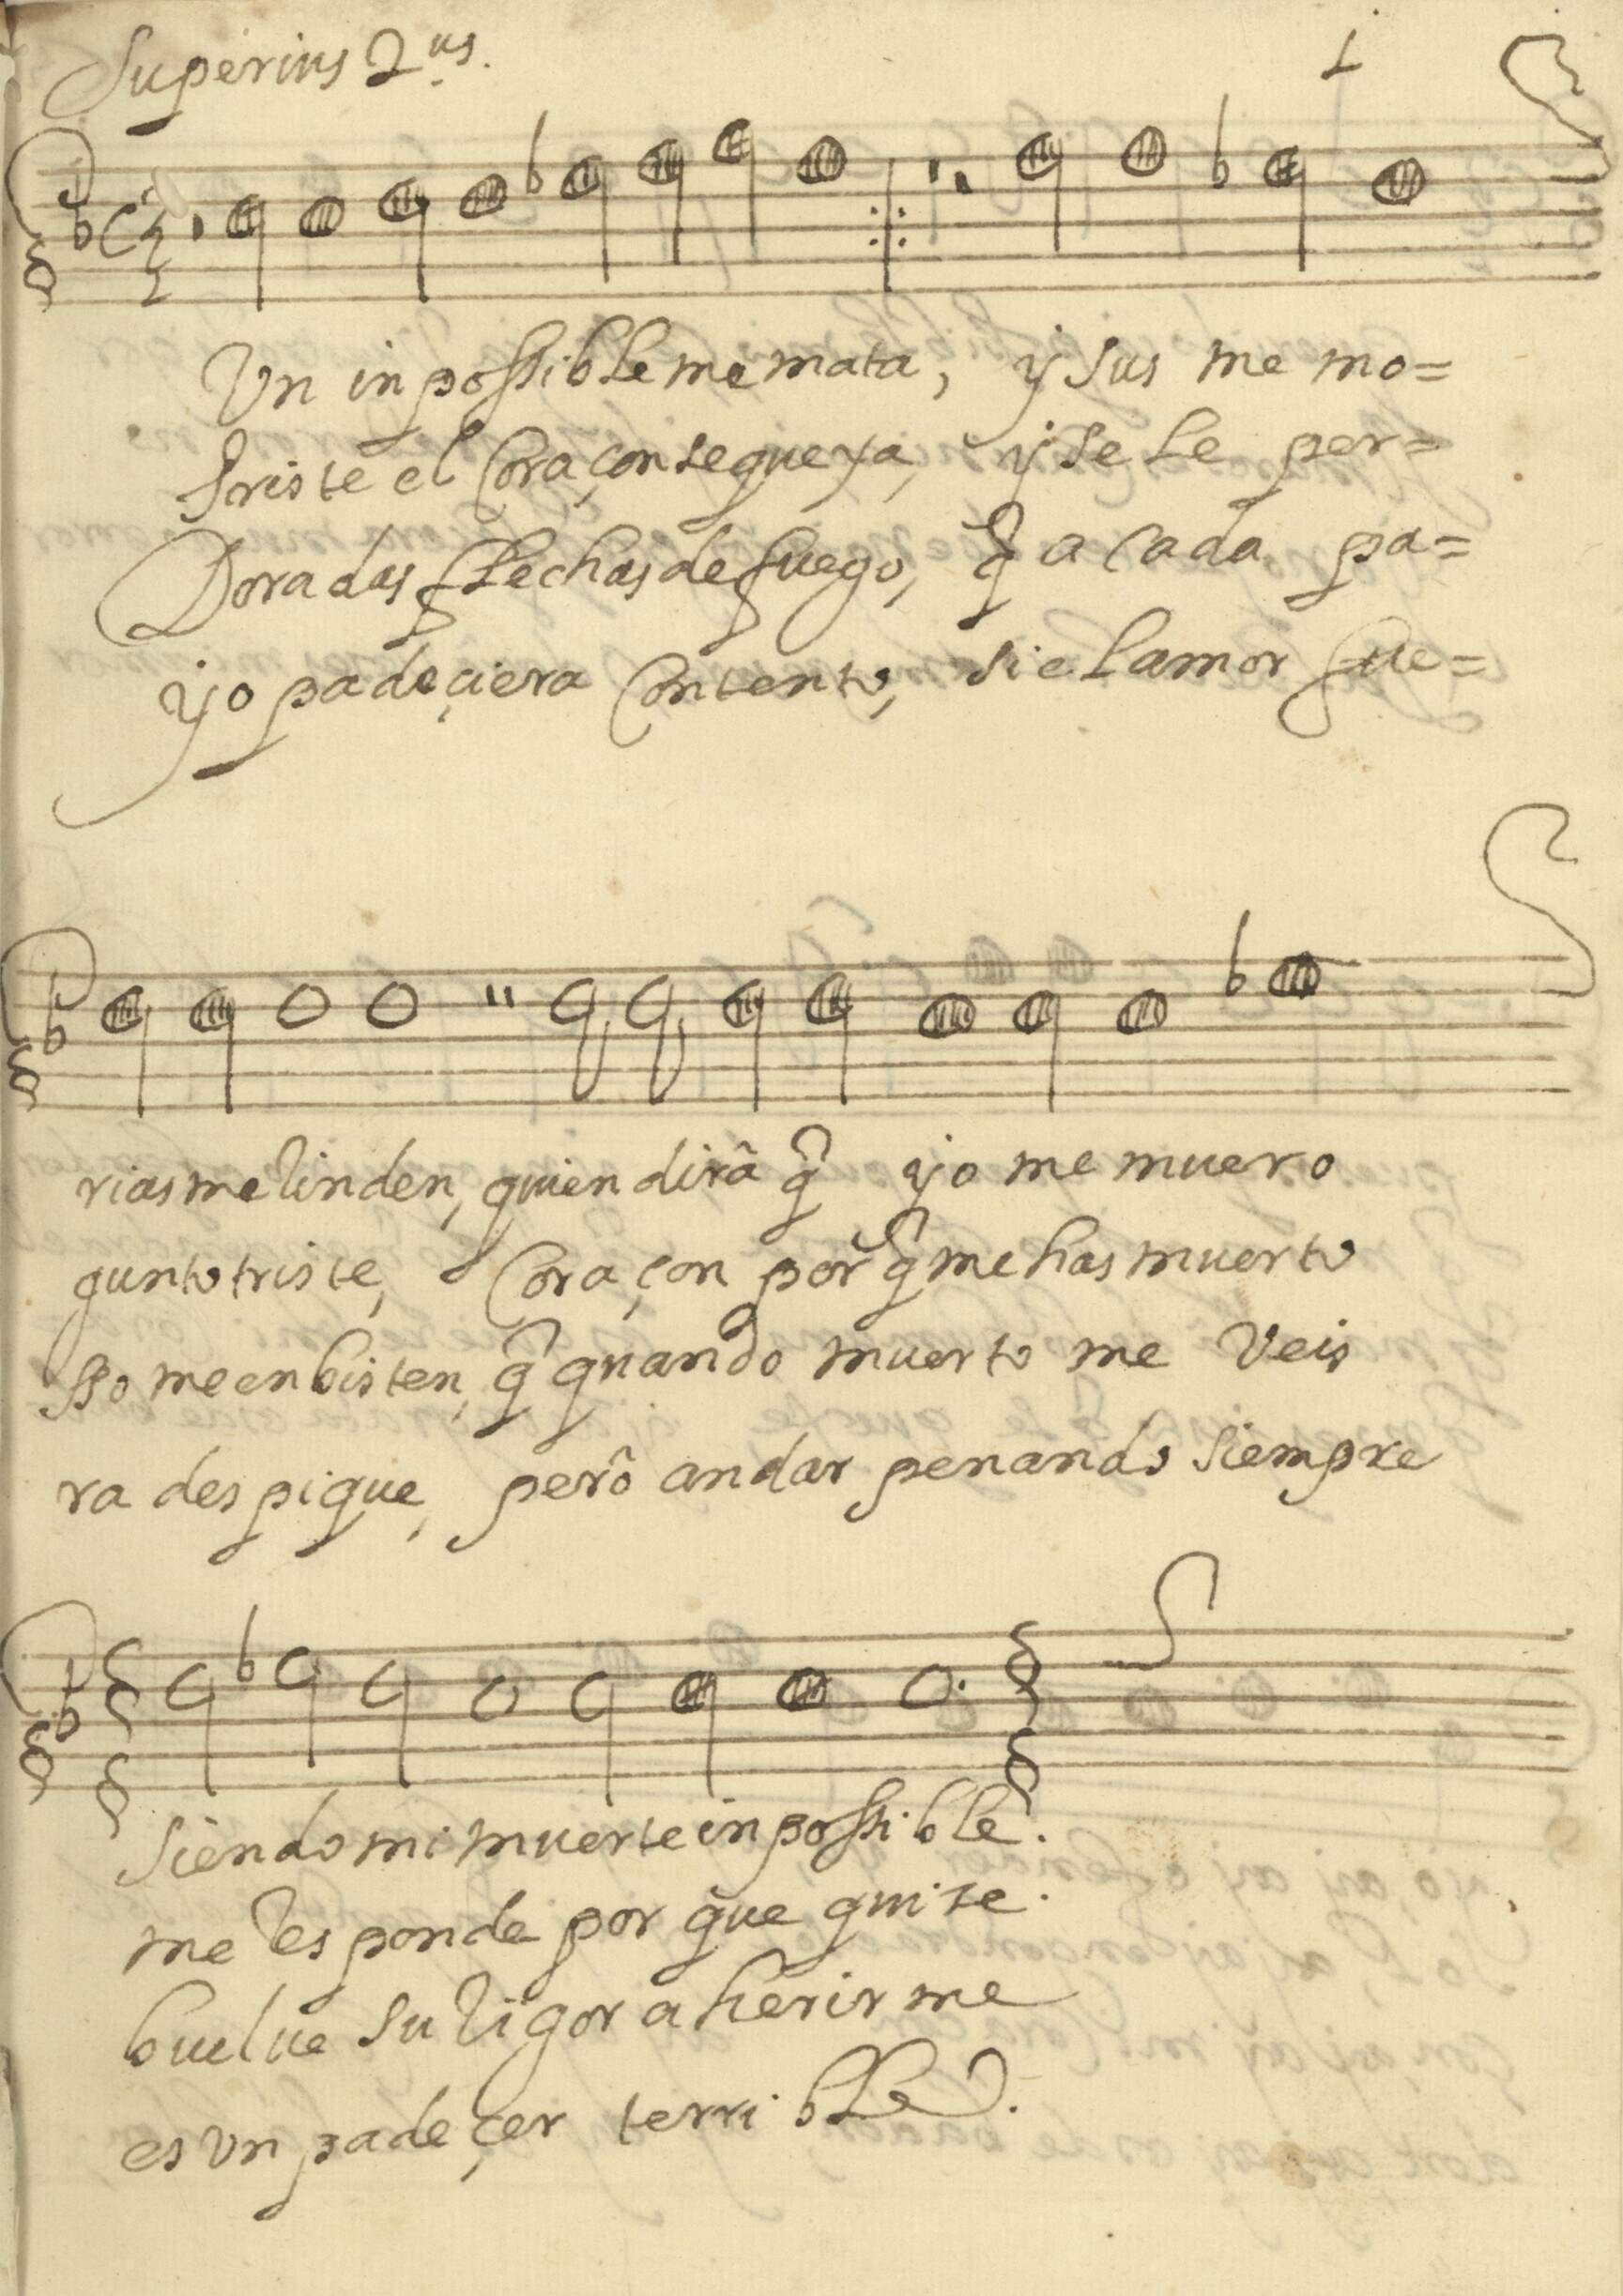 Superius 2.us
1
Un inpossible me mata, y sus me mo=
triste el coraçon se queya, y se le per=
Doradas flechas de fuego, q̃ a cada pa=
yo padeçiera contento, si el amor fue=
rias me rinden, quien dirâ q̃ yo me muero
gunto triste, Coraçon por q̃ me has muerto
sso me enbisten, q̃ quando muerto me veis
ra despique, perô andar penando siempre
siendo mi muerte inpossible.
me responde por que quise.
buelue su rigor a herirme
es un padeçer terrible.